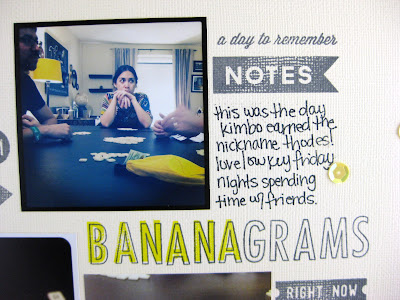 a day to remember
NOTES
this was the day
kimbo earned the
nickname thodes!
love low key friday
nights spending
time w/ friends.
BANANAGRAMS
RIGHT NOW